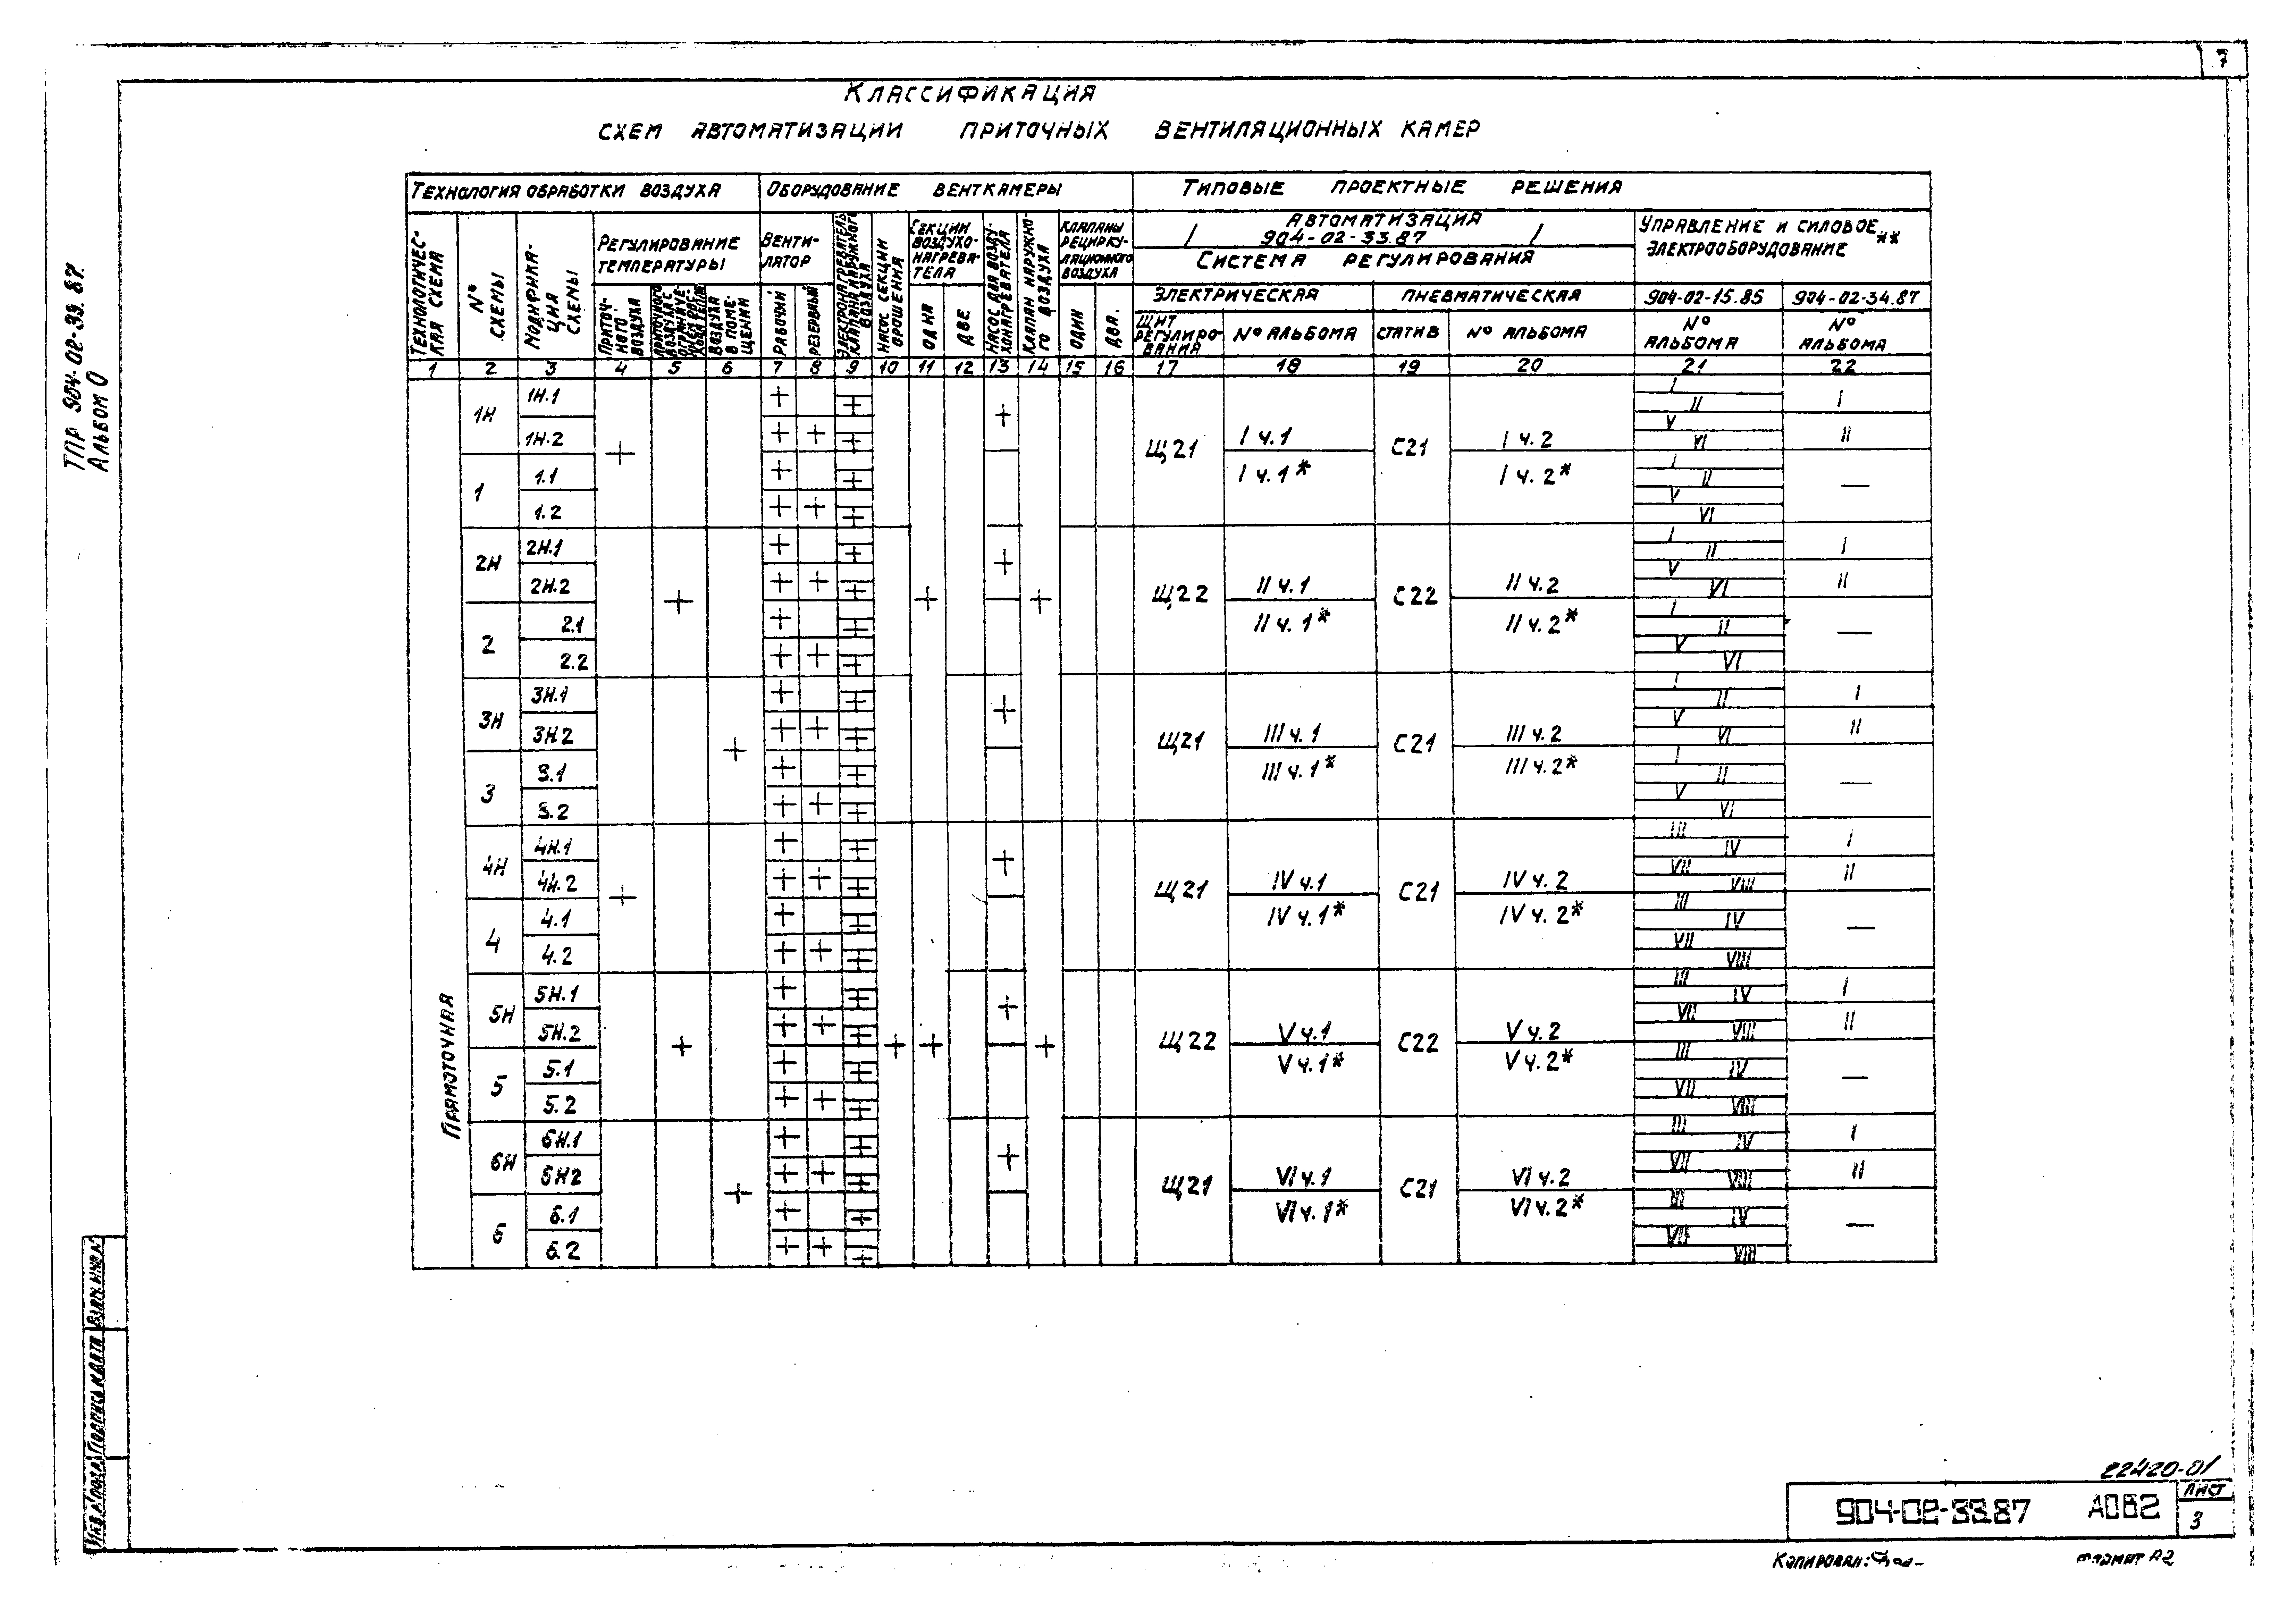 7
КЛАССИФИКАЦИЯ
СХЕМ АВТОМАТИЗАЦИИ ПРИТОЧНЫХ ВЕНТИЛЯЦИОННЫХ КАМЕР
ТПР 904-02-33.87.
АЛЬБОМ 0
ТЕХНОЛОГИЯ ОБРАБОТКИ ВОЗДУХА ОБОРУДОВАНИЕ ВЕНТКАМЕРЫ ТИПОВЫЕ ПРОЕКТНЫЕ РЕШЕНИЯ
ТЕХНОЛОГИЧЕС-
КАЯ СХЕМА
№
СХЕМЫ
МОДИФИКА-
ЦИЯ
СХЕМЫ
РЕГУЛИРОВАНИЕ
ТЕМПЕРАТУРЫ
ПРИТОЧ-
НОГО
ВОЗДУХА
ПРИТОЧНОГО
ВОЗДУХА С
ВОЗДУХА
В ПОМЕ-
ЩЕНИИ
ВЕНТИ-
ЛЯТОР
РАБОЧИЙ
РЕЗЕРВНЫЙ
ЭЛЕКТРОНАГРЕВАТЕЛЬ
КЛАПАНА НАРУЖНОГО
ВОЗДУХА
НАСОС СЕКЦИИ
ОРОШЕНИЯ
СЕКЦИИ
ВОЗДУХО-
НАГРЕВА-
ТЕЛЯ
ОДНА
ДВЕ
НАСОС ДЛЯ ВОЗДУ-
ХОНАГРЕВАТЕЛЯ
КЛАПАН НАРУЖНО-
ГО ВОЗДУХА
КЛАПАНЫ
РЕЦИРКУ-
ЛЯЦИОННОГО
ВОЗДУХА
ОДИН
ДВА.
АВТОМАТИЗАЦИЯ
/ 904-02-33.87 /
СИСТЕМА РЕГУЛИРОВАНИЯ
ЭЛЕКТРИЧЕСКАЯ ПНЕВМАТИЧЕСКАЯ
ЩИТ
РЕГУЛИРО-
ВАНИЯ
№ АЛЬБОМА
СТАТИВ
№ АЛЬБОМА
УПРАВЛЕНИЕ И СИЛОВОЕ
ЭЛЕКТРООБОРУДОВАНИЕ **
904-02-15.85 904-02-34.87
№
АЛЬБОМА
№
АЛЬБОМА
1 2 3 4 5 6 7 8 9 10 11 12 13 14 15 16 17 18 19 20 21 22
ПРЯМОТОЧНАЯ
1Н 1Н.1 + + + I II I
1Н.2 + + + V VI II
+ Щ21 I ч.1 С21 I ч.2
I ч.1* I ч.2*
1 1.1 + + I II —
1.2 + + + V VI
2Н 2Н.1 + + + I II I
2Н.2 + + + V VI II
+ + + Щ22 II ч.1 С22 II ч.2
II ч.1* II ч.2*
2 2.1 + + I II —
2.2 + + + V VI
3Н 3Н.1 + + + I II I
3Н.2 + + + V VI II
+ Щ21 III ч.1 С21 III ч.2
III ч.1* III ч.2*
3 3.1 + + I II —
3.2 + + + V VI
4Н 4Н.1 + + + III IV I
4Н.2 + + + VII VIII II
+ Щ21 IV ч.1 С21 IV ч.2
IV ч.1* IV ч.2*
4 4.1 + + III IV —
4.2 + + + VII VIII
5Н 5Н.1 + + + III IV I
5Н.2 + + + VII VIII II
+ + + + Щ22 V ч.1 С22 V ч.2
V ч.1* V ч.2*
5 5.1 + + III IV —
5.2 + + + VII VIII
6Н 6Н.1 + + + III IV I
6Н2 + + + VII VIII II
+ Щ21 VI ч.1 С21 VI ч.2
VI ч.1* VI ч.2*
6 6.1 + + III IV —
6.2 + + + VII VIII
ИНВ.№ ПОДЛ. ПОДПИСЬ И ДАТА ВЗАМ.ИНВ.№
22420-01
904-02-33.87 АОВ2
ЛИСТ
3
КОПИРОВАЛ:
ФОРМАТ А2